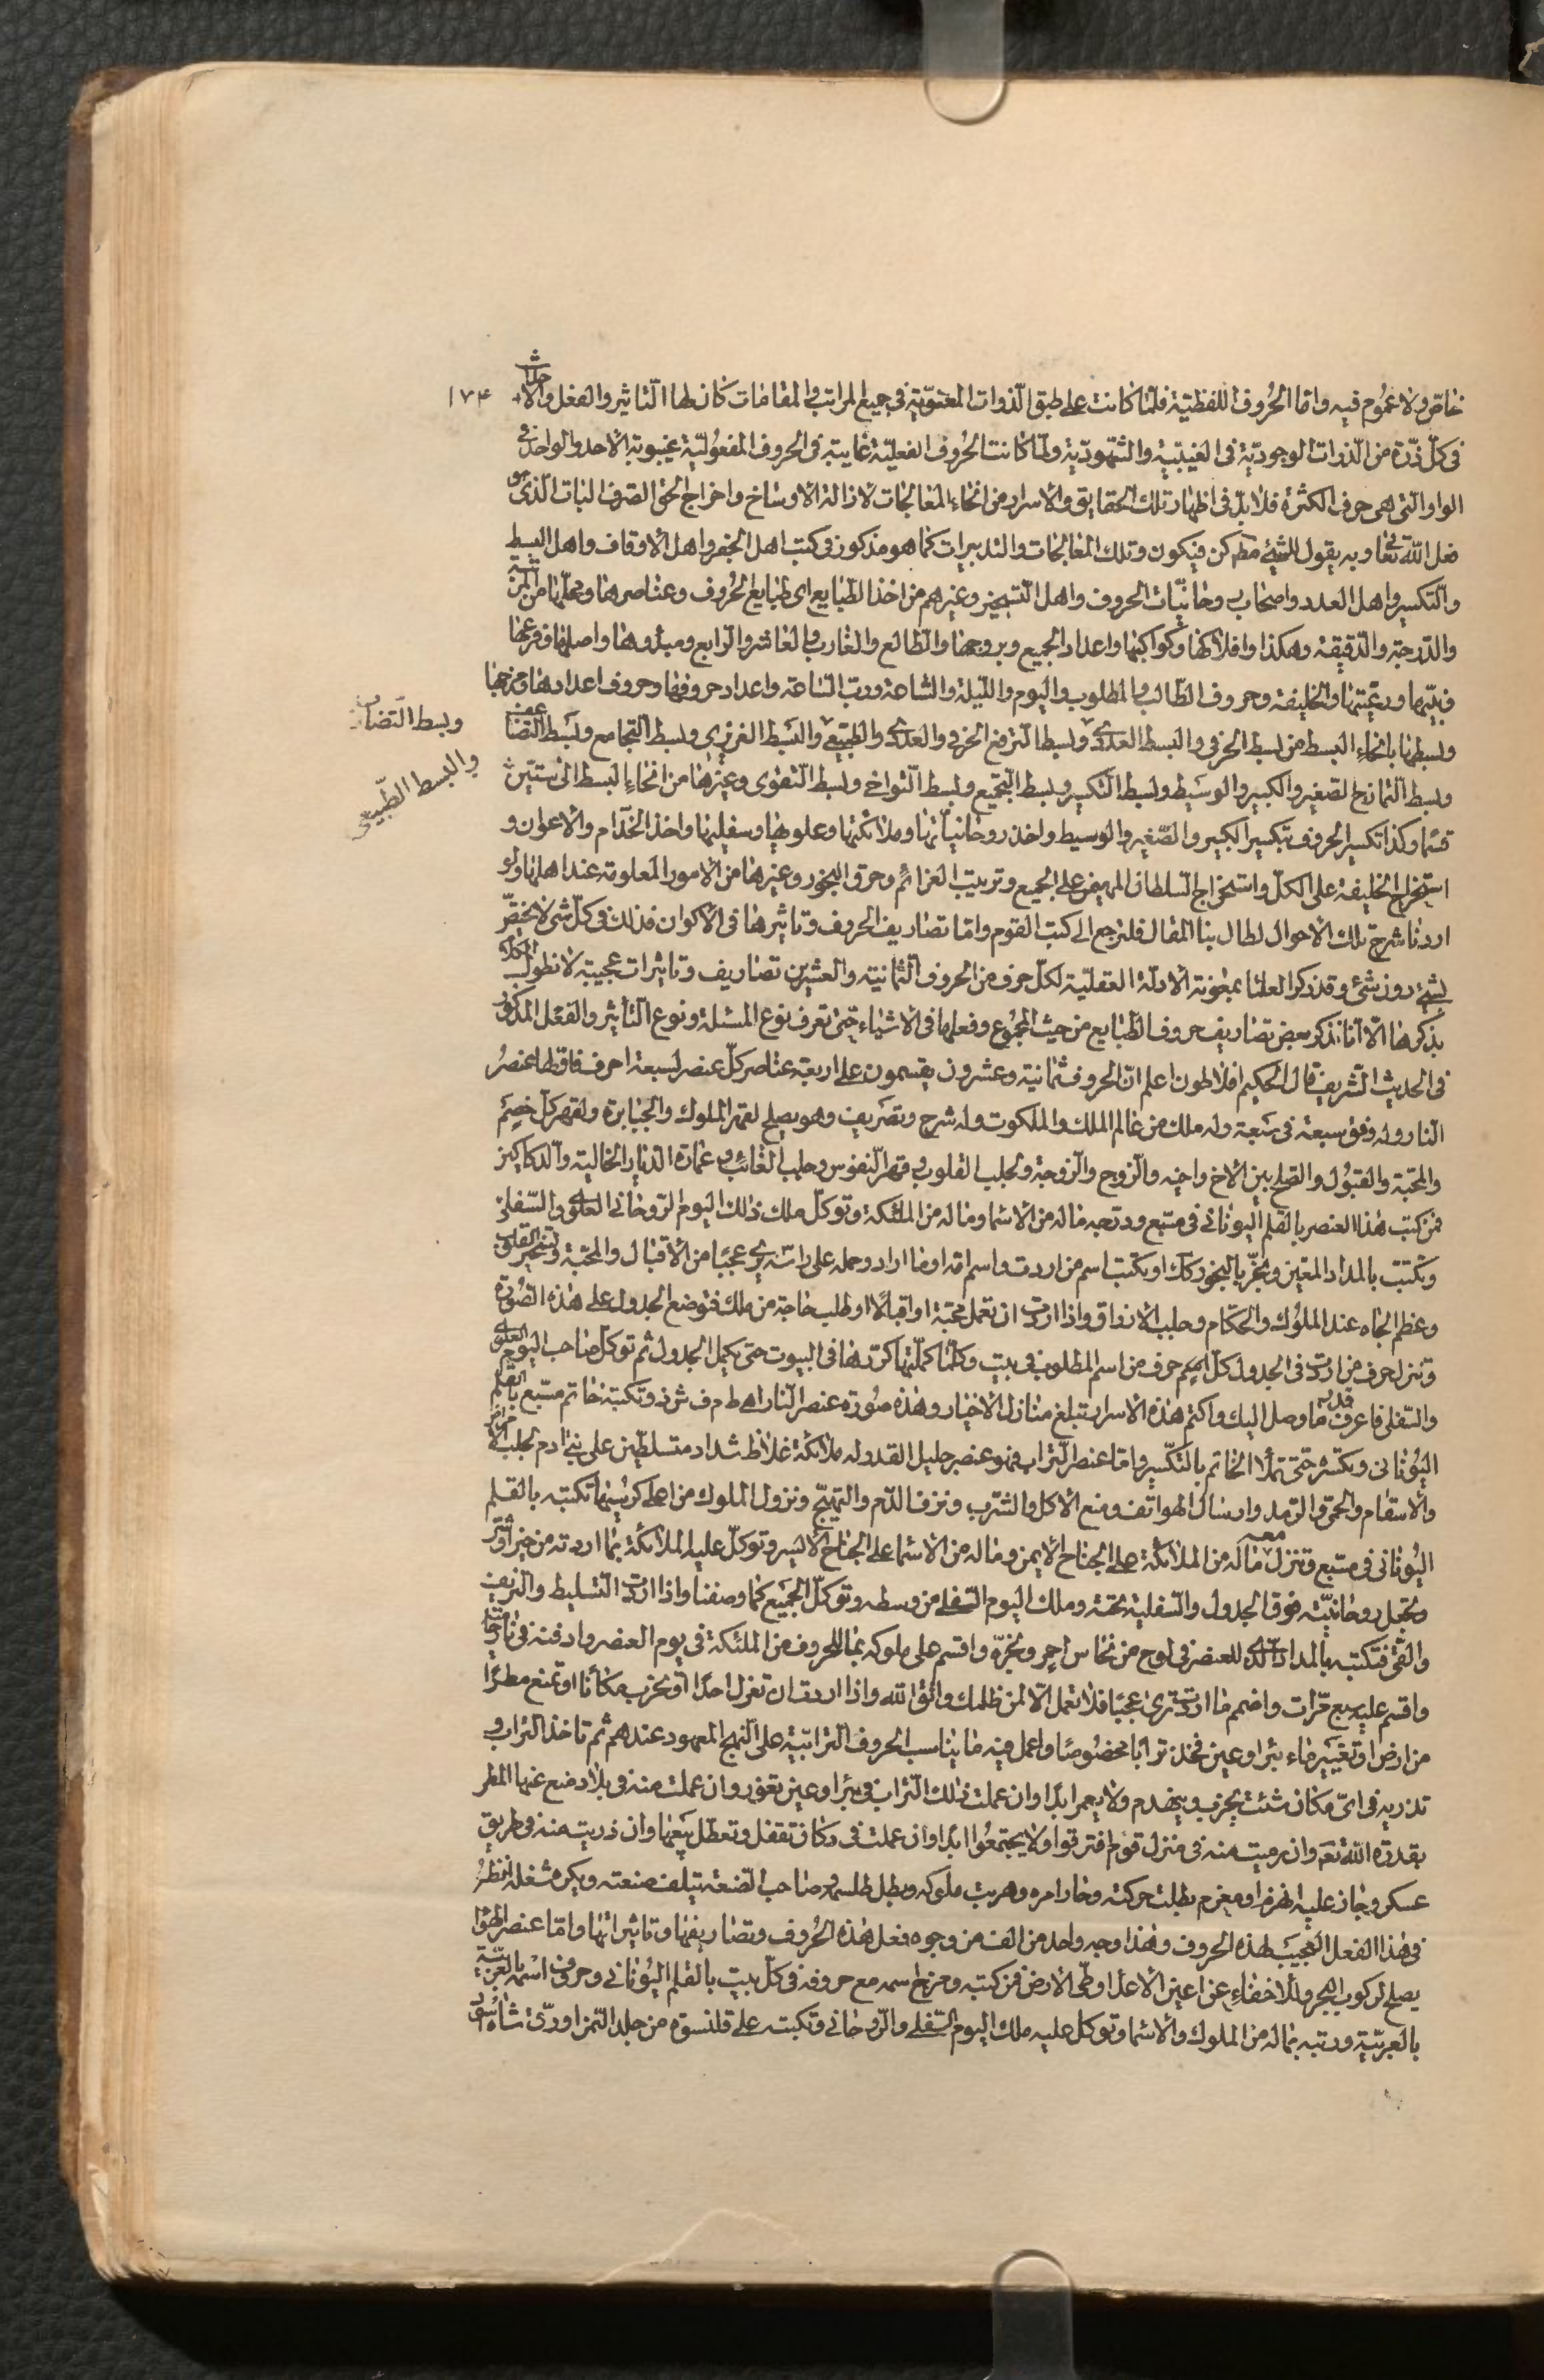 ١٧۴
خاصّ ولا عموم فيه واما الحروف اللفظية فلمّا كانت على طبق الذوات المعنويّة في جميع المراتب والمقامات كان لها التاثير والفعل والاحداث
في كلّ ذرّة من الذوات الوجوديّة في الغيبيّة والشهوديّة ولمّا كانت الحروف الفعليّة غايبة في الحروف المفعوليّة غيبوبة الاحد والواحد في
الواو التى هى حرف الكثرة فلا بدّ في اظهار تلك الحقايق والاسرار من انحاء المعالجات لازالة الاوساخ واخراج الحق الصرف البات الذى هو
فعل اللّه تعا وبه يقول للشئ كن فيكون وتلك المعالجات والتدبيرات كما هو مذكور في كتب اهل الجفر واهل الاوفاق واهل البسط
والتكسير واهل العدد واصحاب روحانيّات الحروف واهل التسخير وغيرهم من اخذ الطبايع اى طبايع الحروف وعناصرها ومحلّها من المرتبة
والدّرجة والدّقيقة وهكذا وافلاكها وكواكبها واعداد الجميع وبروجها والطالع والغارب والعاشر والرابع ومبدئها واصلها وفرعها
فبيّها ورعيّتها والخليفة وحروف الطالب والمطلوب واليوم والليلة والساعة وربّ الساعة واعداد حروفها وحروف اعدادها ومزجها
وبسطها بانحاء البسط من بسط الحرفى والبسط العددى وبسط الترفع الحرفى والعددى والطبيعى والبسط الغريزى وبسط التجامع وبسط التضاعف
وبسط التضارب
وبسط التمازج الصغير والكبير والوسيط وبسط التكسير وبسط التجميع وبسط التواخى وبسط التقوى وغيرها من انحاء البسط الى ستّين
والبسط الطّبيعى
قسما وكذا تكسير الحروف بتكسير الكبير والصّغير والوسيط واخذ روحانيّاتها وملائكتها وعلويها وسفليها واخذ الخدّام والاعوان و
استخراج الخليفة على الكلّ واستخراج السلطان المهيمن على الجميع وترتيب العزائم وحرق البخور وغيرها من الامور المعلومة عند اهلها ولو
اردنا شرح تلك الاحوال لطال بنا المقال فلنرجع الى كتب القوم واما تصاريف الحروف وتاثيرها في الاكوان فذلك في كلّ شى لا يختصّ
لشئ دون شئ وقد ذكر العلما بمعونة الادلّة العقليّة لكلّ حرف من الحروف الثمانية والعشرين تصاريف وتاثيرات عجيبة لا نطول الكلام
بذكرها الّا انّا نذكر بعض تصاريف حروف الطبايع من حيث المجموع وفعلها في الاشياء حتى تعرف نوع المسئلة ونوع التأثير والفعل المذكور
في الحديث الشريف قال الحكيم افلاطون اعلم انّ الحروف ثمانية وعشرون يقسمون على اربعة عناصر كلّ عنصر لسبعة احرف فاوّلها عنصر
النار وله وفق سبعة في سبعة وله ملك من عالم الملك والملكوت وله شرح وتصريف وهو يصلح لقهر الملوك والجبابرة ولقهر كلّ خصم
والمحبّة والقبول والصّلح بين الاخ واخيه والزوج والزوجة ولجلب القلوب وقهر النفوس وجلب الغائب وعمارة الديار الخالية والدكاكين
فمن كتب هذا العنصر بالقلم اليونانى في مسبّع ودتجه ماله من الاسما وماله من الملئكة وتوكّل ملك ذلك اليوم الروحانى العلوى والسّفلى
وتكتب بالمداد المعيّن وبخّر بالبخور كك او يكتب اسم من اردت واسم امه او ما اراد وحمله على راسه يرى عجبًا من الاقبال والمحبّة وتسخير القلوب
وعظم الجاه عند الملوك والحكّام وجلب الارزاق واذا اردت ان تعمل محبّة او اقبالا او طلب حاجة من ملك فتوضع الجدول على هذه الصّورة
وتنزل حرف من اردت في الجدول كلّ حرف من اسم المطلوب في بيت وكلّما كملتها كرّرها في البيوت حتى يكمل الجدول ثم توكّل صاحب اليوم العلوى
والسّفلى فاعرف قدر ما وصل اليك واكتم هذه الاسرار تبلغ منازل الاخيار وهذه صورة عنصر النار ا ه ط م ف ش ذ وتكتبه خاتم مسبّع بالقلم
اليونانى وتكسّره حتى تملأ الخاتم بالتكسير واما عنصر التراب فهو عنصر جليل القدر وله ملائكة غلاظ شداد متسلطين على بنى ادم لجلب الامراض
والاسقام والحمى والرّمد وارسال الهواتف ومنع الاكل والشّرب ونزف الدّم والتهيّج ونزول الملوك من اعلى كرسيها تكتبه بالقلم
اليونانى في مسبّع وتنزل معه ماله من الملائكة على الجناح الايمن وماله من الاسما على الجناح الايسر وتوكّل عليه الملائكة بما اردته من خير او شر
وتجعل روحانيّته فوق الجدول والسّفلية تحته وملك اليوم السّفلى من وسطه وتوكّل الجميع كما وصفنا واذا اردت التسليط والنزيف
والقى فتكتبه بالمداد الذى للعنصر في لوح من نحاس احمر وبخّره واقسم على ملوكه بما للحروف من الملئكة في يوم العنصر وادفنه في نار
واقسم عليه سبع مرّات واضمر ما اردت ترى عجبًا فلا تعمل الّا لمن ظلمك واتق اللّه واذا اردت ان تعزل احدًا او تخرب مكانًا او تمنع مطرًا
من ارض او تغيير ماء بئر او عين فخذ ترابا مخصوصًا واعمل فيه ما يناسب الحروف الترابيّة على النهج المعهود عندهم ثم تاخذ التراب و
تذريه في اىّ مكان شئت يخرب ويهدم ولا يعمر ابدًا وان عملت ذلك التراب في بئر او عين تغور وان عملت منه في بلاد منع عنها المطر
بقدرة اللّه تعم وان رميت منه في منزل قوم افترقوا ولا يجتمعوا ابدًا وان عملت في دكان تقفل وتعطّل بيعها وان ذريت منه في طريق
عسكر وجاز عليه انهزم او معزم بطلت حركته وحار امره وهربت ملوكه وبطل طلسمه وصاحب الصّنعة يتلف صنعته ويكره شغله انظر
في هذا الفعل العجيب لهذه الحروف وهذا وجه واحد من الف من وجوه فعل هذه الحروف وتصاريفها وتاثيراتها واما عنصر الهوا
يصلح لركوب البحر والاخفاء عن اعين الاعدا وطىّ الارض فمن كتبه ومزج اسمه مع حروفه في كلّ بيت بالقلم اليونانى وحروف اسمه بالعربيّة
بالعربيّة ورتبه بماله من الملوك والاسما وتوكل عليه ملك اليوم السّفلى والرّوحانى وتكتبه على قلنسوة من جلد النمر او رقّ شاة